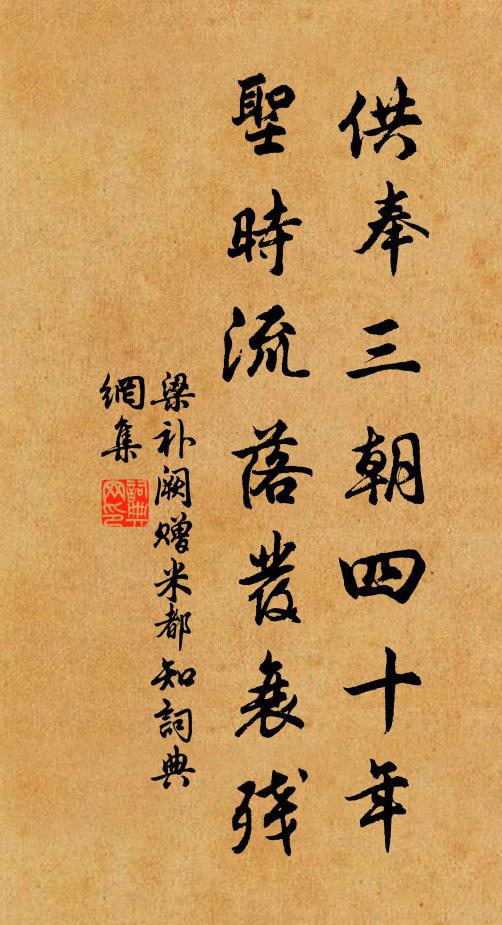 供奉三朝四十年
聖時流落發衰殘
梁补阙赠米都知詞典
網集
詞典
网印